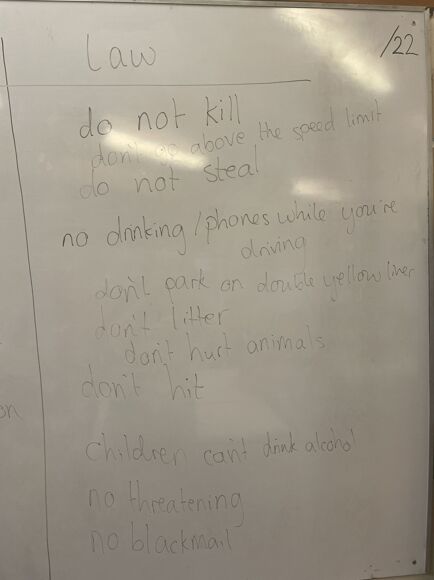 Law
/22
do not kill
don't go above the speed limit
do not steal
no drinking / phones while you're
driving
don't park on double yellow lines
don't litter
don't hurt animals
don't hit
on
children can't drink alcohol
no threatening
no blackmail